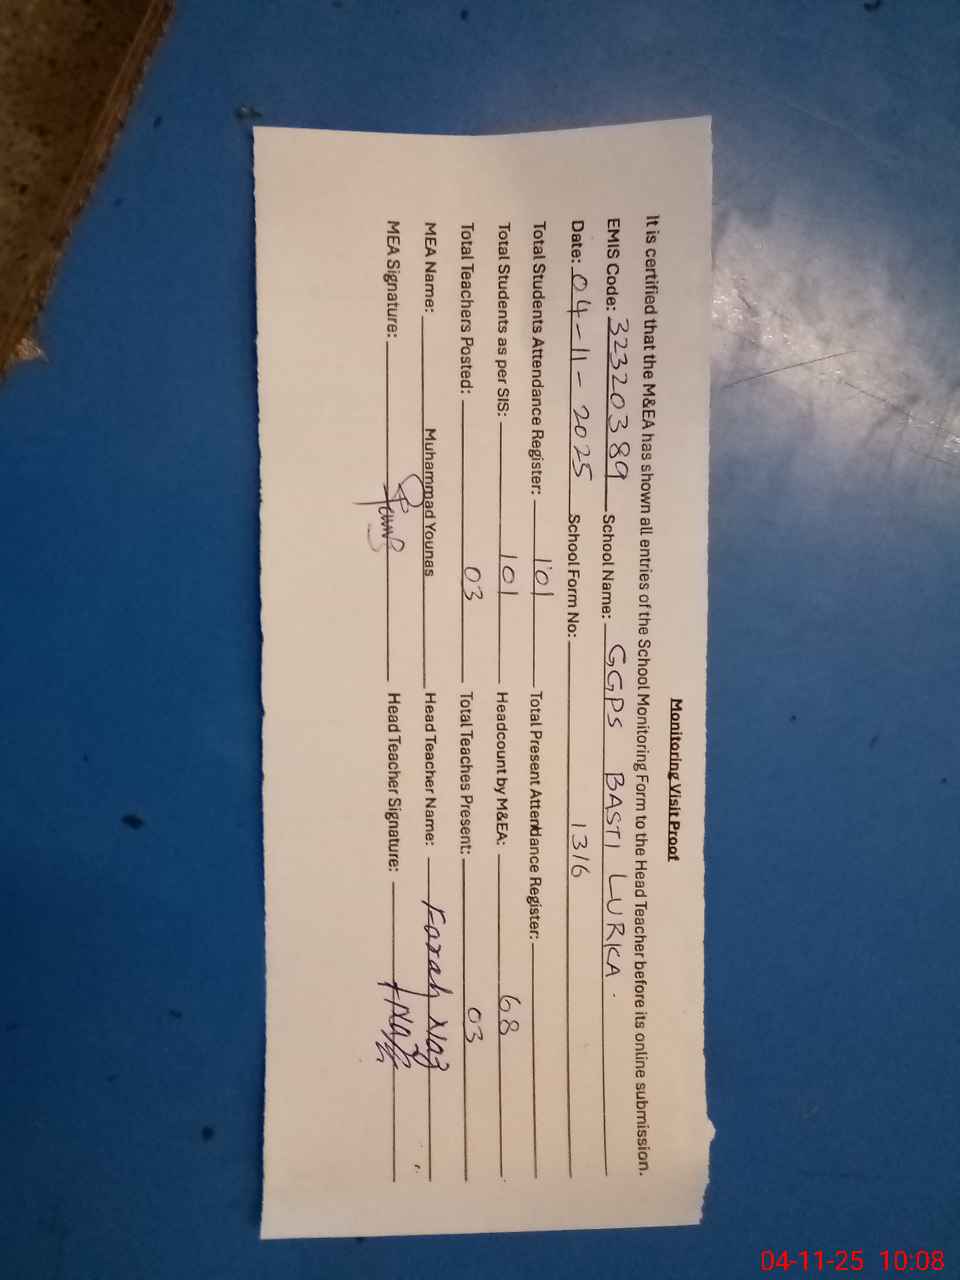 Monitoring Visit Proof
It is certified that the M&EA has shown all entries of the School Monitoring Form to the Head Teacher before its online submission.
EMIS Code: 32320389 School Name: GGPS BASTI LURKA.
Date: 04-11-2025 School Form No: 1316
Total Students Attendance Register: 101 Total Present Attendance Register:
Total Students as per SIS: 101 Headcount by M&EA: 68
Total Teachers Posted: 03 Total Teaches Present: 03
MEA Name: Muhammad Younas Head Teacher Name: Farah Naz
MEA Signature: Head Teacher Signature: FNaz
04-11-25 10:08